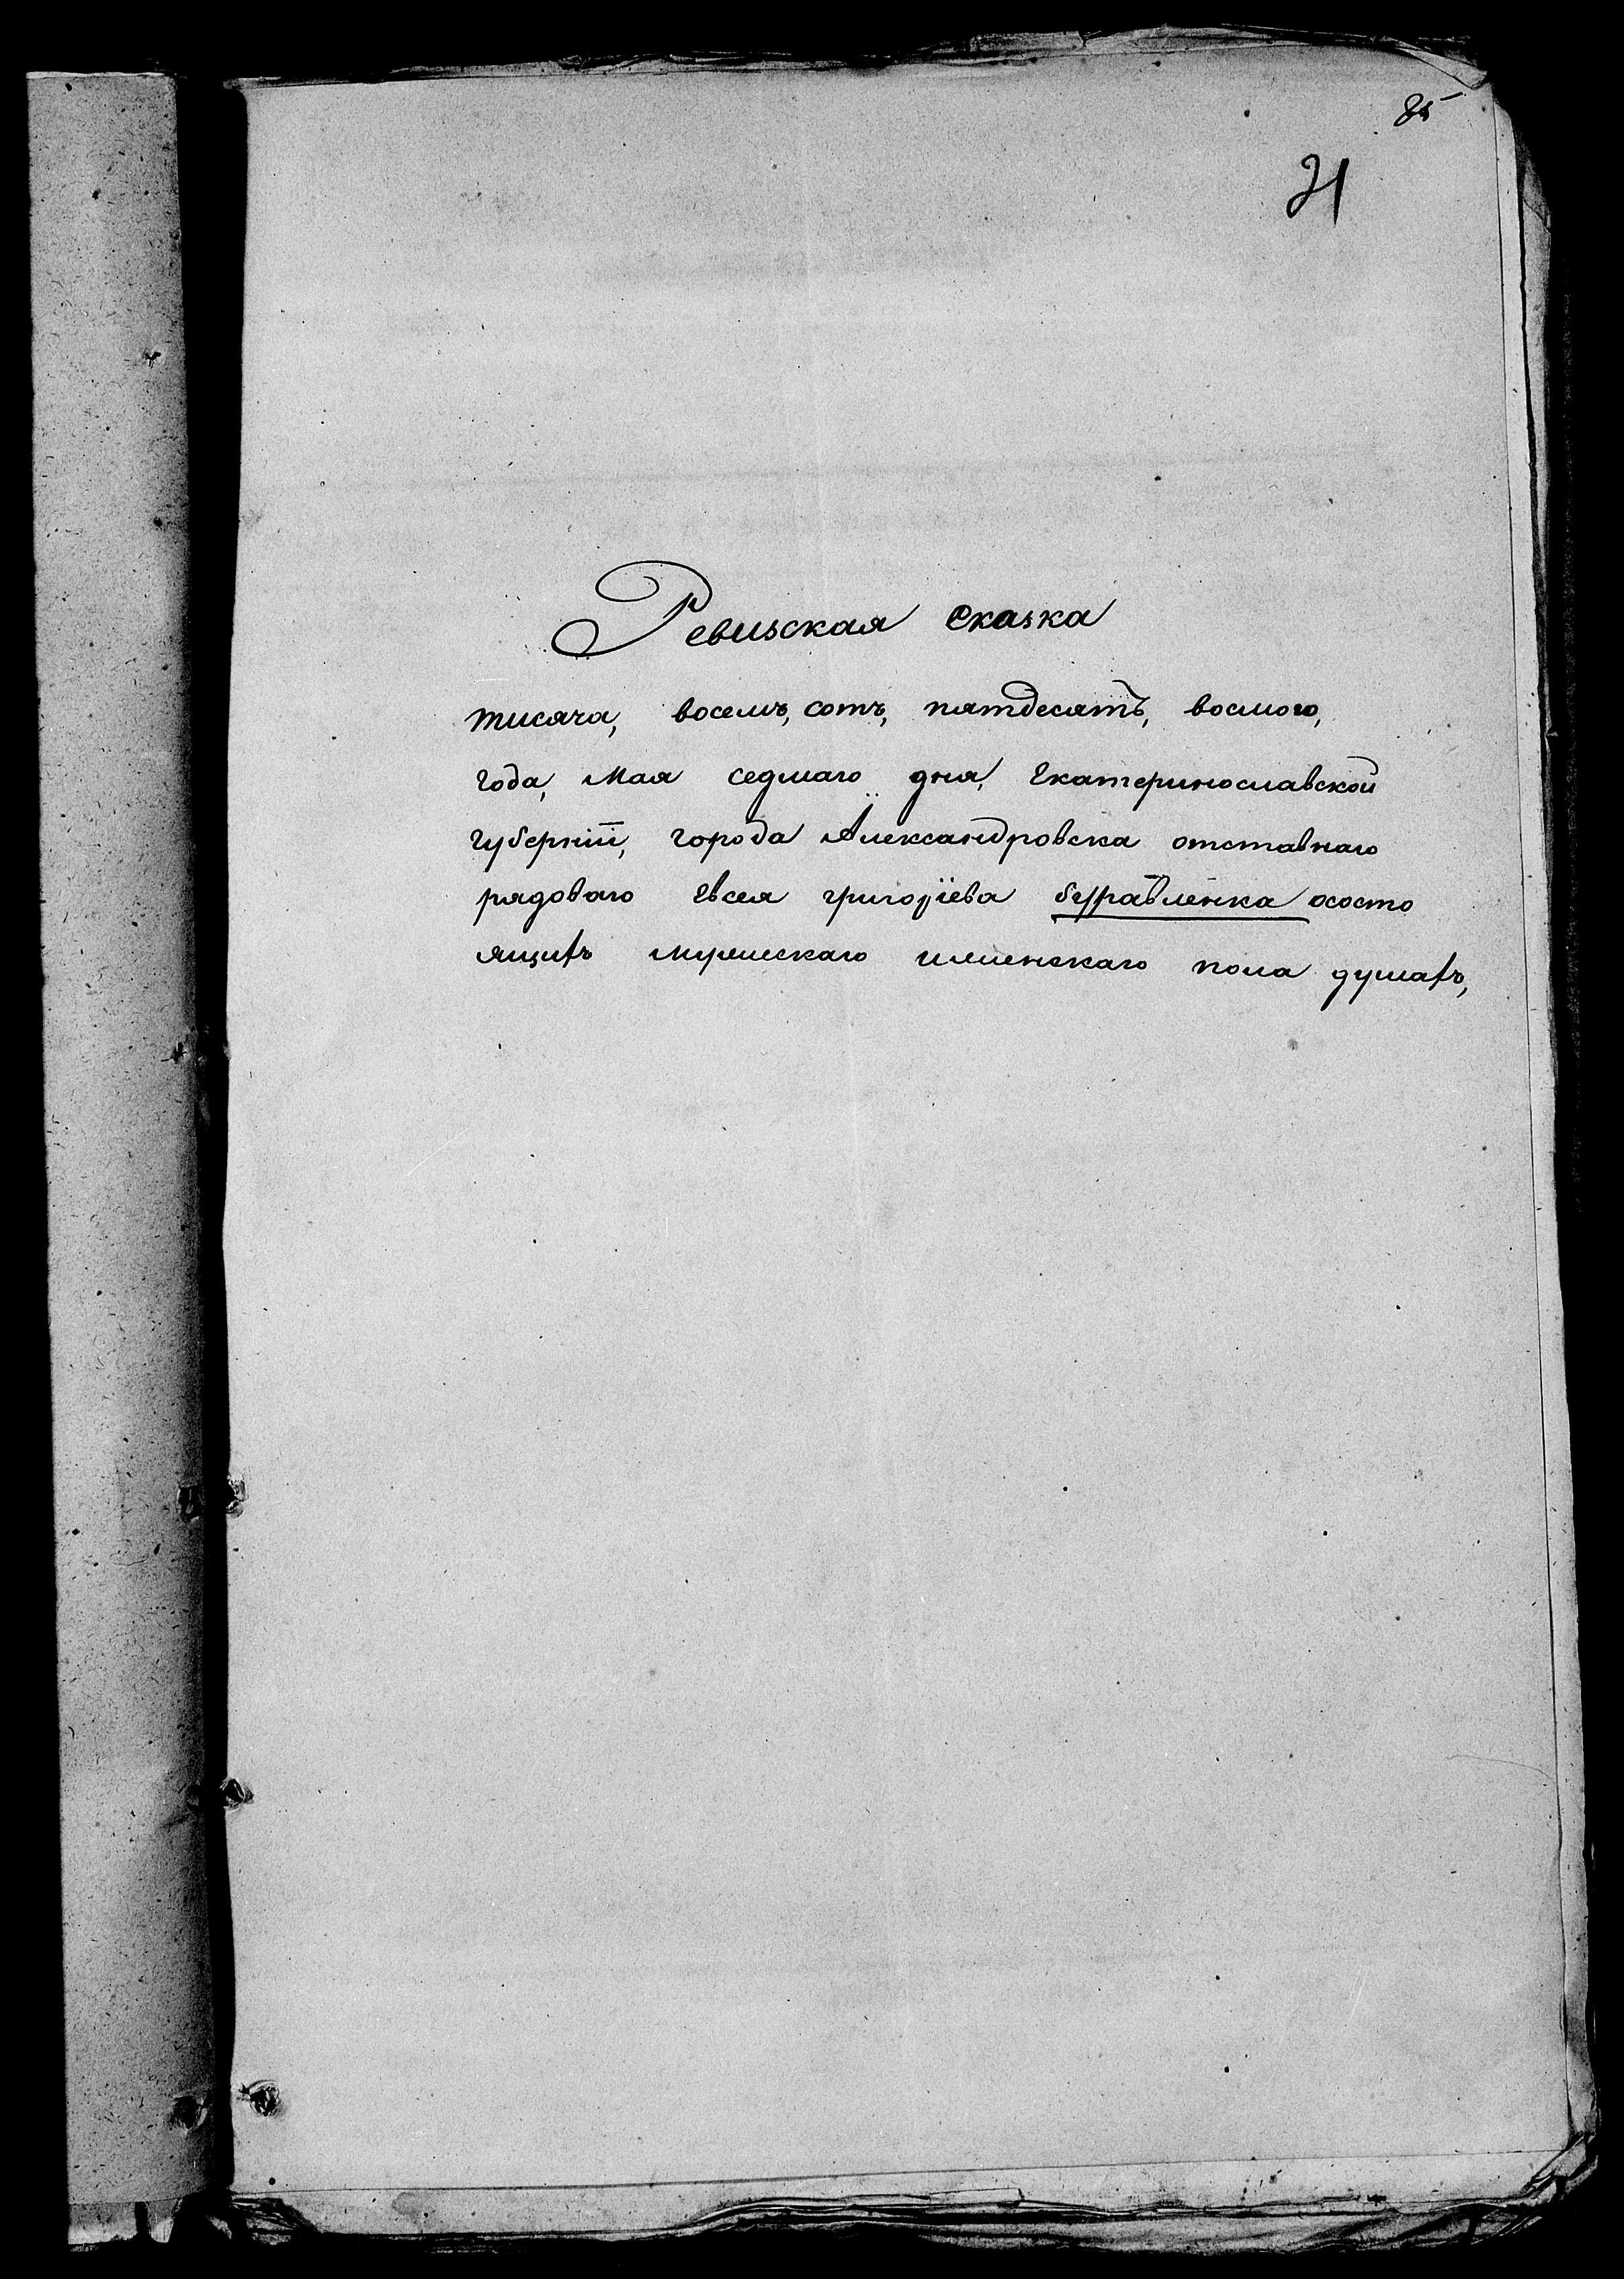 85
21
Ревизская сказка
тисяча, восемъ, сотъ, пятдесятъ, восмого,
года, Мая седмаго дня, Екатеринославской
губерніи, города Александровска отставнаго
рядоваго Евсея григорїева буравленка ососто
ящихъ мужескаго иженскаго пола душахъ,